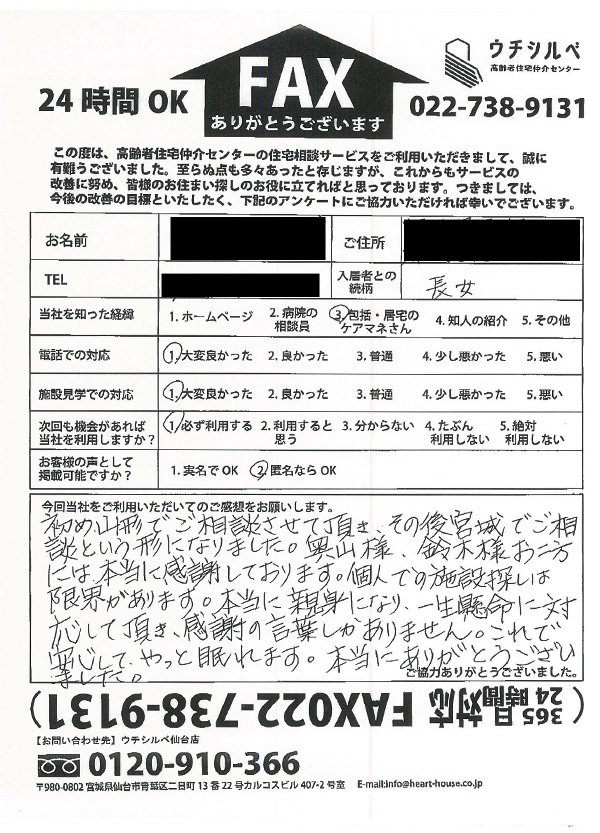 24時間OK
FAX
ありがとうございます
ウチシルベ
高齢者住宅仲介センター
022-738-9131
この度は、高齢者住宅仲介センターの住宅相談サービスをご利用いただきまして、誠に
有難うございました。至らぬ点も多々あったと存じますが、これからもサービスの
改善に努め、皆様のお住まい探しのお役に立てればと思っております。つきましては、
今後の改善の目標といたしたく、下記のアンケートにご協力いただければ幸いでございます。
お名前
ご住所
TEL
入居者との
続柄
長女
当社を知った経緯
1. ホームページ
2. 病院の
相談員
3. 包括・居宅の
ケアマネさん
4. 知人の紹介
5. その他
電話での対応
1. 大変良かった 2. 良かった 3. 普通 4. 少し悪かった 5. 悪い
施設見学での対応
1. 大変良かった 2. 良かった 3. 普通 4. 少し悪かった 5. 悪い
次回も機会があれば
当社を利用しますか?
1. 必ず利用する
2. 利用すると
思う
3. 分からない
4. たぶん
利用しない
5. 絶対
利用しない
お客様の声として
掲載可能ですか?
1. 実名でOK 2. 匿名ならOK
今回当社をご利用いただいてのご感想をお願いします。
初め山形でご相談させて頂き、その後宮城でご相
談という形になりました。奥山様、鈴木様お二方
には本当に感謝しております。個人での施設探しは
限界があります。本当に親身になり、一生懸命に対
応して頂き、感謝の言葉しかありません。これで
安心して、やっと眠れます。本当にありがとうござい
ました。
ご協力ありがとうございました。
(365日
24時間対応 FAX022-738-9131)
【お問い合わせ先】ウチシルベ仙台店
0120-910-366
〒980-0802 宮城県仙台市青葉区二日町13番22号カルコスビル407-2号室 E-mail:info@heart-house.co.jp